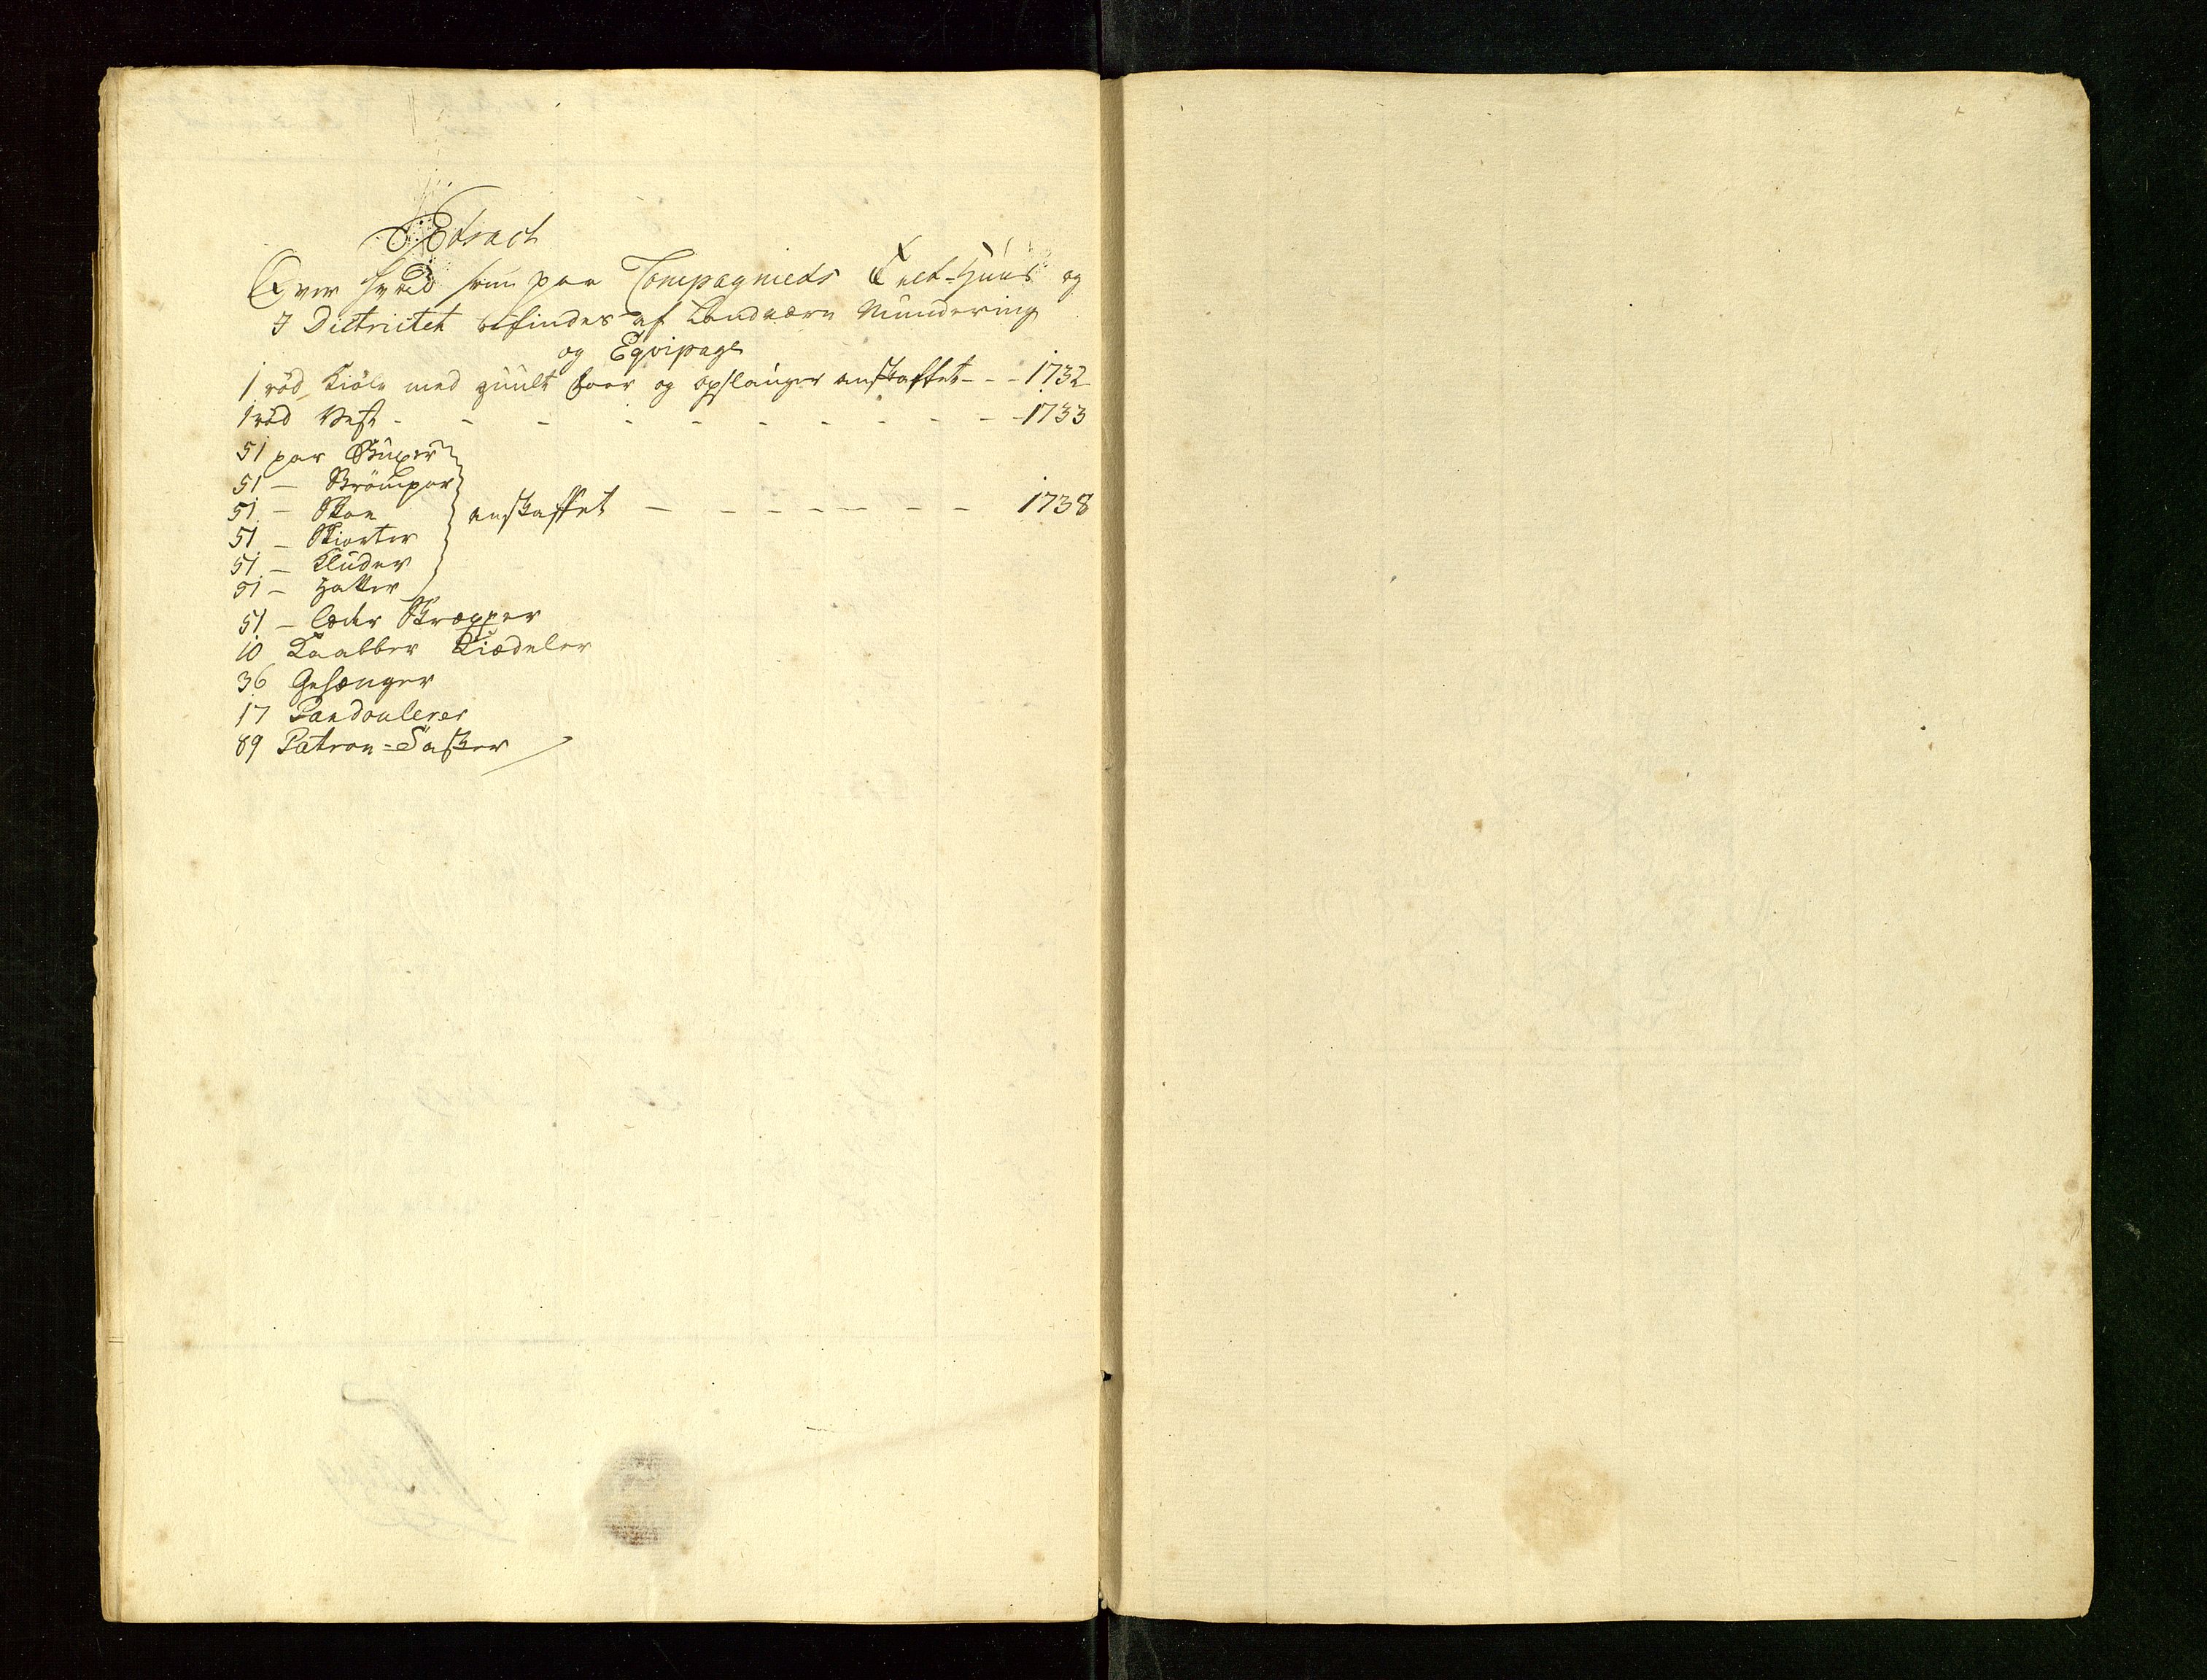 Extract
Over hvad som paa Compagniets Telt-Huus og
I Districtet befindes af Landværn Mundering
og Eqvipage
1 röd Kiöle med guult Foer og opslauger anskaffet - - - 1732
1 röd Vest - - - - - - - - - - 1733
51 par Buxer
51 — Strömper
51 — Skoe
51 — Skiorter
51 — Kluder
51 — Hatter
anskaffet — - - - - - - 1738
51 — læder Skræpper
10 Kaabber Kiædeler
36 Gehænger
17 Bandoulerer
89 Patron-Tasker